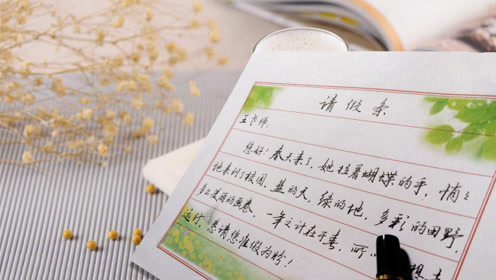 请假条
王老师:
您好!春天来了,她拉着蝴蝶的手,悄悄
地来到了校园,蓝的天,绿的地,多彩的田野,
多么美丽的画卷,一年之计在于春,所
远行,恳请您准假为盼!